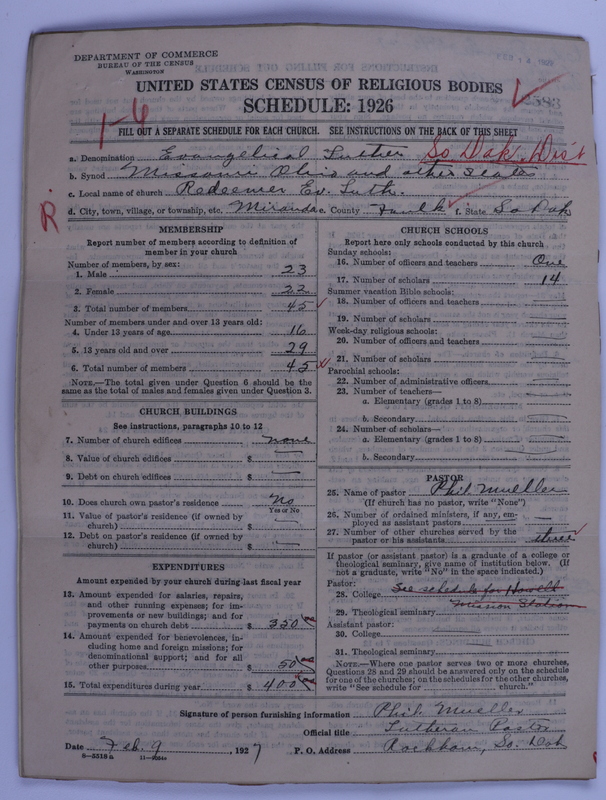 DEPARTMENT OF COMMERCE
BUREAU OF THE CENSUS
WASHINGTON
UNITED STATES CENSUS OF RELIGIOUS BODIES
SCHEDULE: 1926
1-6
FILL OUT A SEPARATE SCHEDULE FOR EACH CHURCH. SEE INSTRUCTIONS ON THE BACK OF THIS SHEET
a. Denomination Evangelical Luther So Dak. Dist
b. Synod Missouri Ohio and other States
c. Local name of church Redeemer Ev. Luth.
d. City, town, village, or township, etc. Miranda e. County Faulk f. State So Dak
R.
MEMBERSHIP
Report number of members according to definition of
member in your church
Number of members, by sex:
1. Male 23
2. Female 22
3. Total number of members 45
Number of members under and over 13 years old:
4. Under 13 years of age 16
5. 13 years old and over 29
6. Total number of members 45
NOTE.—The total given under Question 6 should be the
same as the total of males and females given under Question 3.
CHURCH BUILDINGS
See instructions, paragraphs 10 to 12
7. Number of church edifices none
8. Value of church edifices $ —
9. Debt on church edifices $ —
10. Does church own pastor's residence No
Yes or No
11. Value of pastor's residence (if owned by
church) $ —
12. Debt on pastor's residence (if owned by
church) $ —
EXPENDITURES
Amount expended by your church during last fiscal year
13. Amount expended for salaries, repairs,
and other running expenses; for im-
provements or new buildings; and for
payments on church debt $ 350
14. Amount expended for benevolences, in-
cluding home and foreign missions; for
denominational support; and for all
other purposes $ 50
15. Total expenditures during year $ 400
CHURCH SCHOOLS
Report here only schools conducted by this church
Sunday schools:
16. Number of officers and teachers One
17. Number of scholars 14
Summer vacation Bible schools:
18. Number of officers and teachers —
19. Number of scholars —
Week-day religious schools:
20. Number of officers and teachers —
21. Number of scholars —
Parochial schools:
22. Number of administrative officers —
23. Number of teachers—
a. Elementary (grades 1 to 8) —
b. Secondary —
24. Number of scholars—
a. Elementary (grades 1 to 8) —
b. Secondary —
PASTOR
25. Name of pastor Phil. Mueller
(If church has no pastor, write "None")
26. Number of ordained ministers, if any, em-
ployed as assistant pastors —
27. Number of other churches served by the
pastor or his assistants three
If pastor (or assistant pastor) is a graduate of a college or
theological seminary, give name of institution below. (If
not a graduate, write "No" in the space indicated.)
Pastor:
28. College See schedule for Howell
Mission Station
29. Theological seminary
Assistant pastor:
30. College
31. Theological seminary
NOTE.—Where one pastor serves two or more churches,
Questions 28 and 29 should be answered only on the schedule
for one of the churches; on the schedules for the other churches,
write "See schedule for church."
Signature of person furnishing information Phil. Mueller
Official title Lutheran Pastor
Date Feb. 9, 1927 P. O. Address Rockham, So. Dak
8-5518a